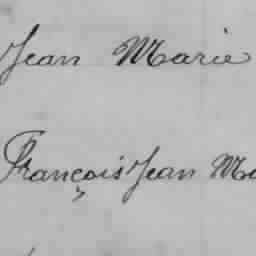 Jean Marie
François Jean Ma